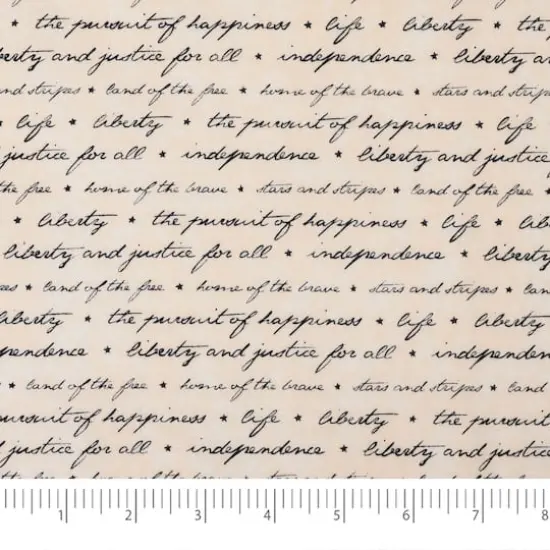 ★ the pursuit of happiness ★ life ★ liberty ★ the
berty and justice for all ★ independence ★ liberty an
and stripes ★ land of the free ★ home of the brave ★ stars and stripes
★ life ★ liberty ★ the pursuit of happiness ★ life
justice for all ★ independence ★ liberty and justice
the free ★ home of the brave ★ stars and stripes ★ land of the free ★
★ liberty ★ the pursuit of happiness ★ life ★ libe
liberty and justice for all ★ independence ★ liberty
es ★ land of the free ★ home of the brave ★ stars and stripes ★ land
liberty ★ the pursuit of happiness ★ life ★ liberty
pendence ★ liberty and justice for all ★ independen
★ land of the free ★ home of the brave ★ stars and stripes ★ land
pursuit of happiness ★ life ★ liberty ★ the pursuit
d justice for all ★ independence ★ liberty and justice
1 2 3 4 5 6 7 8